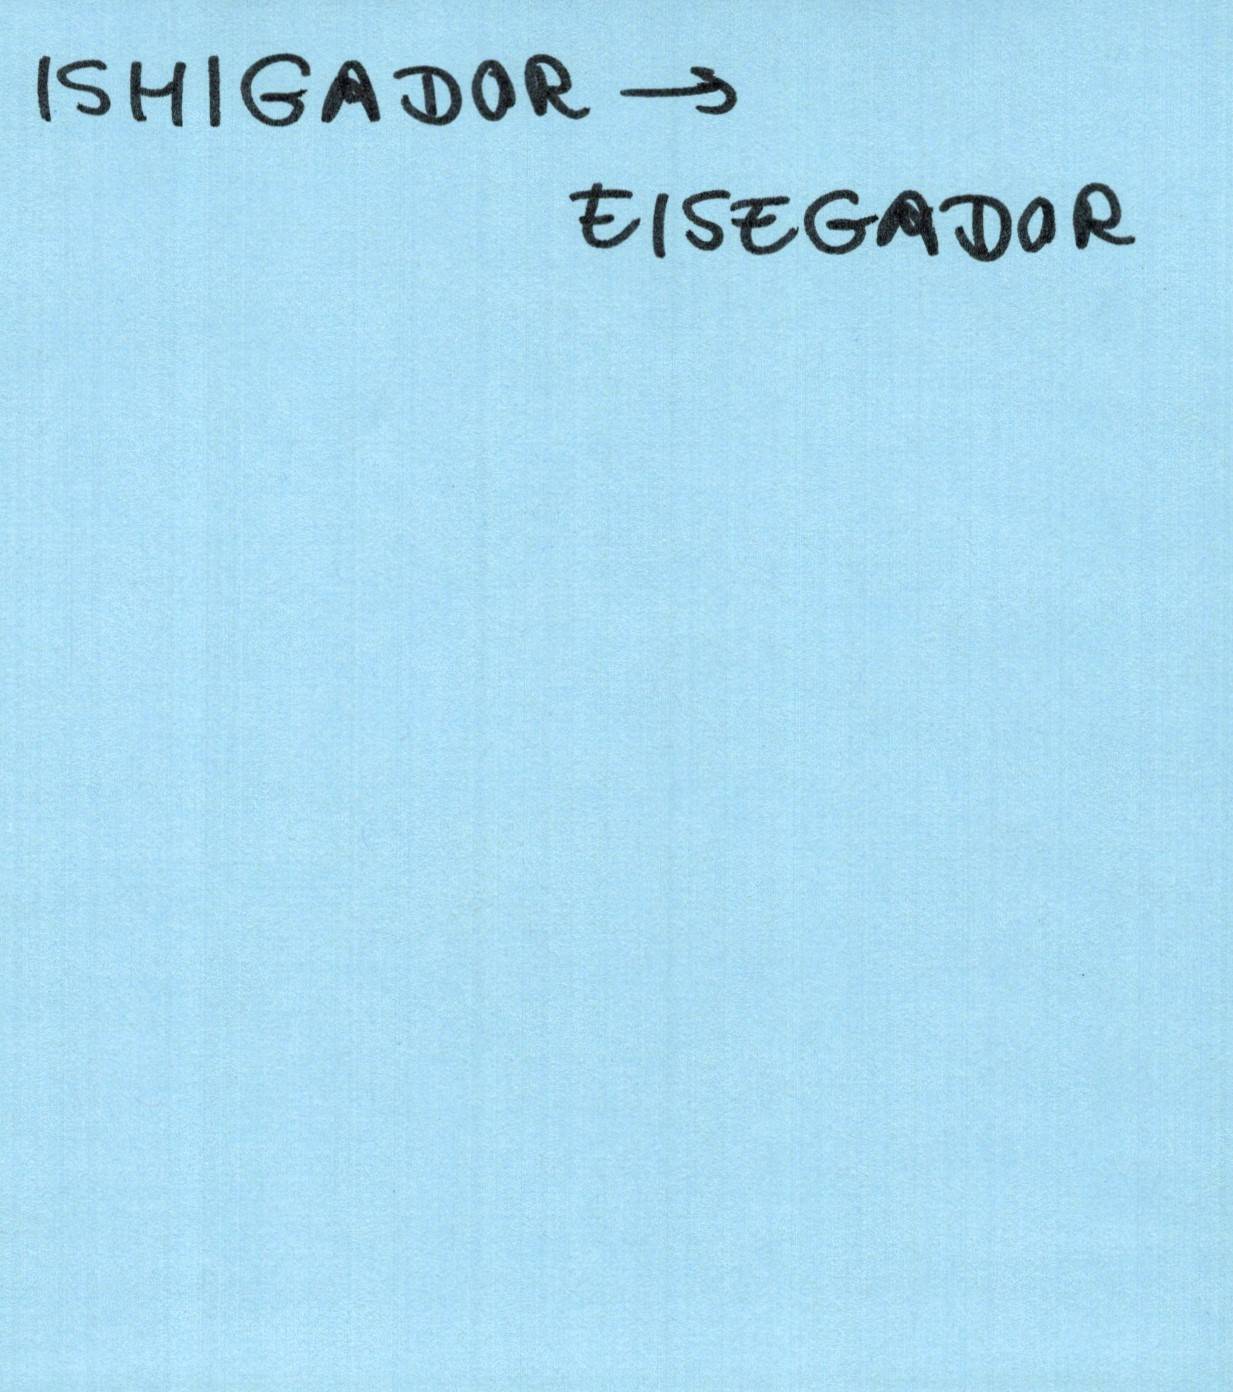 ISHIGADOR →
EISEGADOR